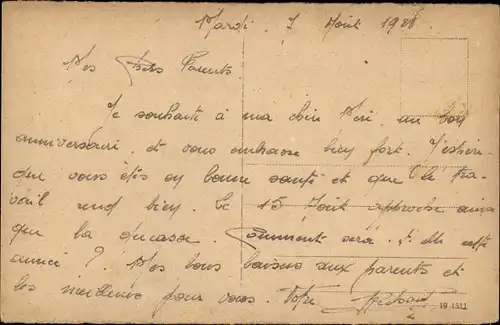 Mardi, 7 Août 1928
Mes Chers Parents.
Je souhaite à ma chère Meri, un bon
anniversaire, et vous embrasse bien fort. J'espère
que vous êtes en bonne santé et que le tra-
vail rend bien. Le 15 Août approche ainsi
que la ducasse. Comment sera t'elle cette
année? Mes bons baisers aux parents et
les meilleurs pour vous. Votre
19 1511